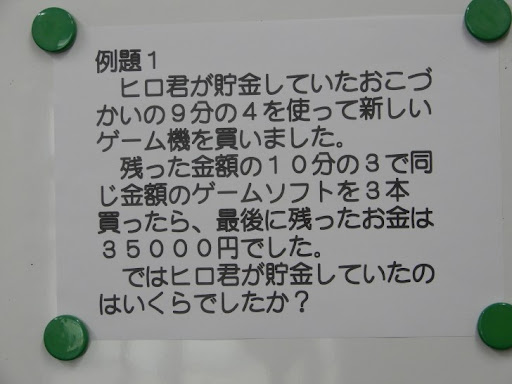 例題１
　ヒロ君が貯金していたおこづ
かいの９分の４を使って新しい
ゲーム機を買いました。
　残った金額の１０分の３で同
じ金額のゲームソフトを３本
買ったら、最後に残ったお金は
３５０００円でした。
　ではヒロ君が貯金していたの
はいくらでしたか？